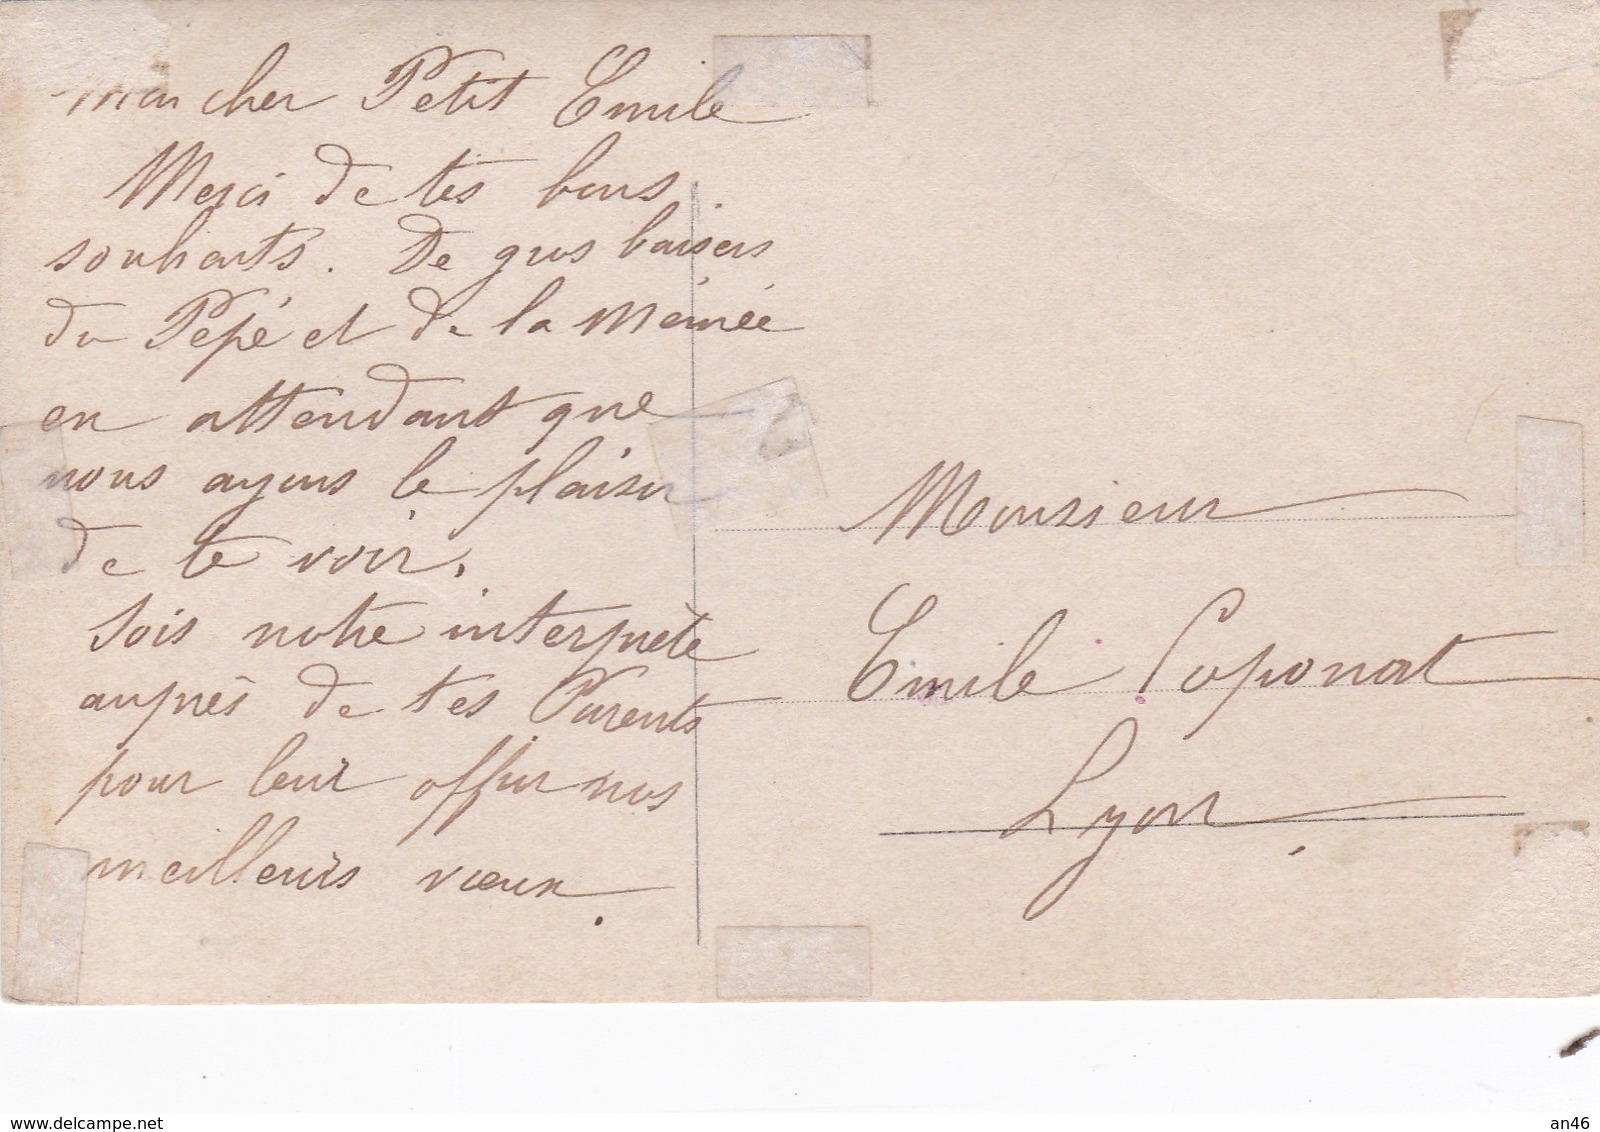 Mon cher Petit Emile
Merci de tes bons
souhaits. De gros baisers
du Pépé et de la Mémée
en attendant que
nous ayons le plaisir
de te voir.
Sois notre interprète
auprès de tes Parents
pour leur offrir nos
meilleurs vœux.
Monsieur
Emile Coponat
Lyon
www.delcampe.net
an46